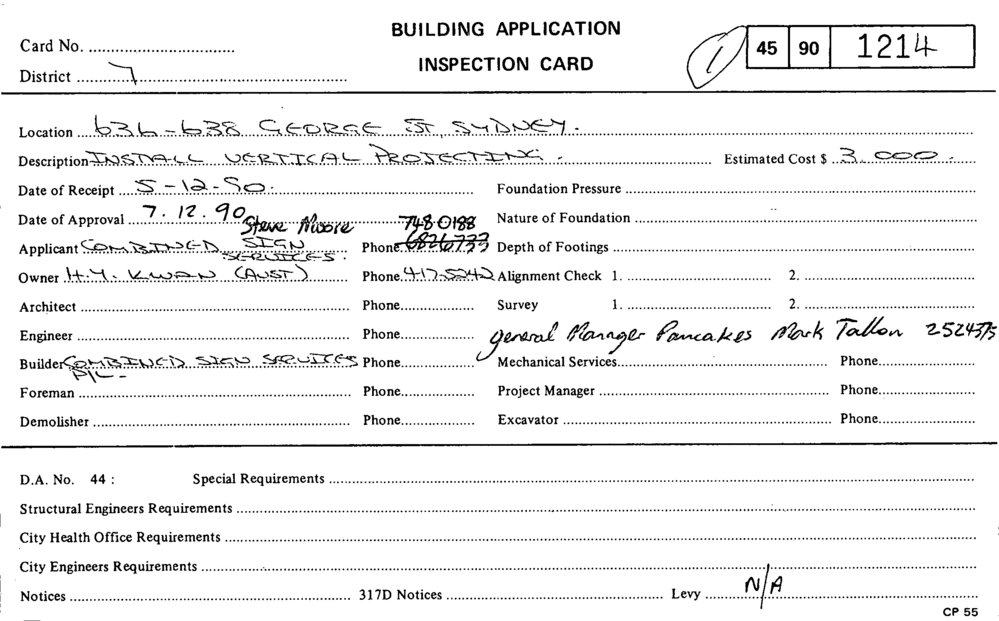 BUILDING APPLICATION
INSPECTION CARD
Card No.
District 7
1 45 90 1214
Location 636-638 GEORGE ST, SYDNEY.
Description INSTALL VERTICAL PROJECTING. Estimated Cost $ 3,000.
Date of Receipt 5-12-90. Foundation Pressure
Date of Approval 7.12.90 Steve Moore 748 0188 Nature of Foundation
Applicant COMBINED SIGN SERVICES. Phone 6826733 Depth of Footings
Owner H.Y. KWAN (AUST) Phone 417-5242 Alignment Check 1. 2.
Architect Phone Survey 1. 2.
Engineer Phone general Manager Pancakes Mark Tallon 2524375
Builder COMBINED SIGN SERVICES P/L- Phone Mechanical Services Phone
Foreman Phone Project Manager Phone
Demolisher Phone Excavator Phone
D.A. No. 44 : Special Requirements
Structural Engineers Requirements
City Health Office Requirements
City Engineers Requirements
Notices 317D Notices Levy N/A
CP 55